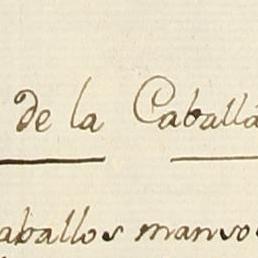 de la Caballa
aballos manso